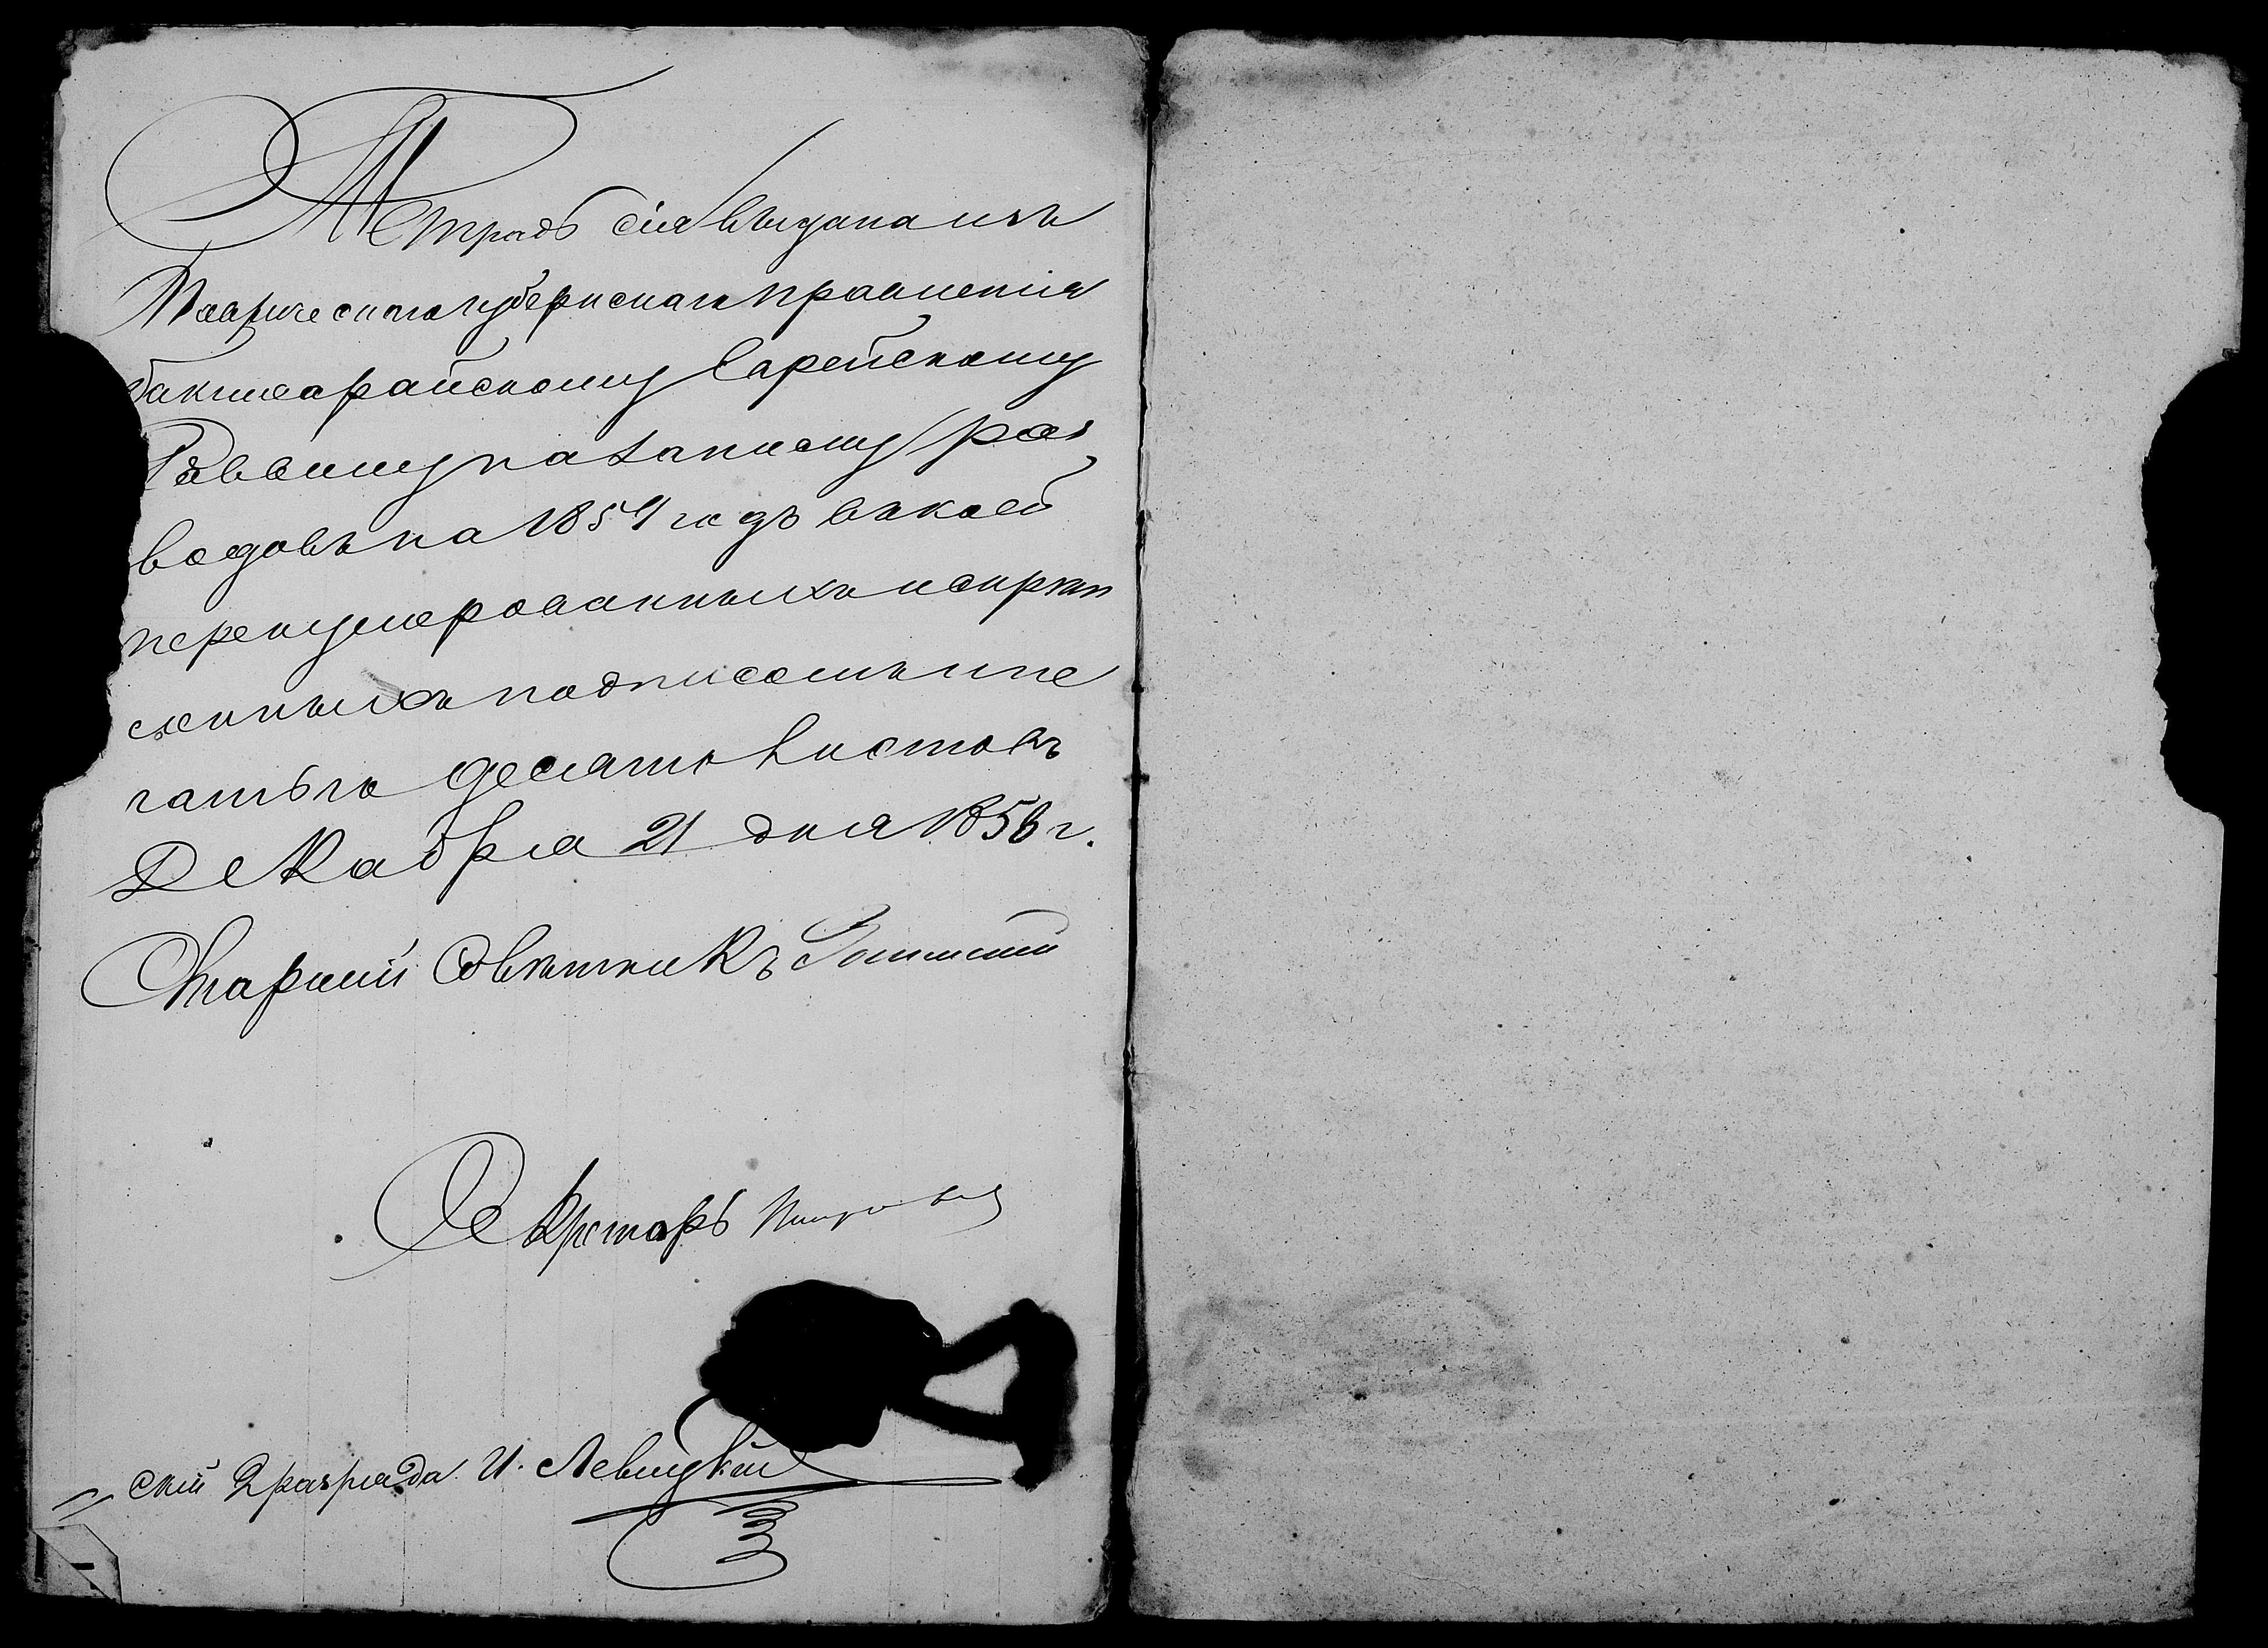 Тетрадь сія выдана изъ
Таврическаго губернскаго правленія
Бакчисарайскому Еврейскому
Раввину на записку раз
водовъ на 1857 годъ въ коей
перенумерованныхъ и скрѣп
ленныхъ подписомъ и пе
чатью десять листовъ
Декабря 21 дня 1856 г.
Старшій Совѣтникъ
Секретарь
скій 2 разряда И. Левицкій